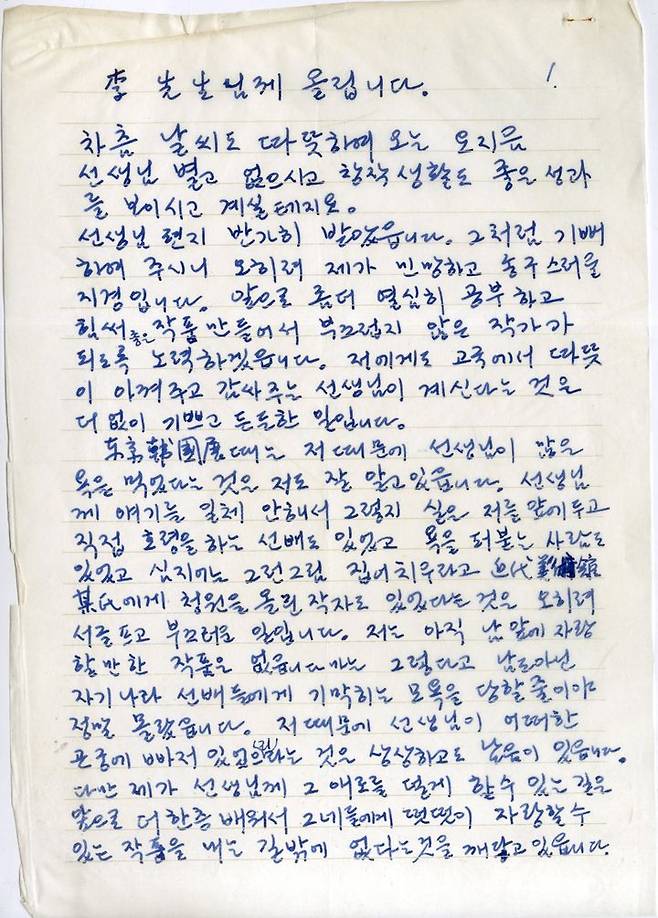 李 선생님께 올립니다. 1.
차츰 날씨도 따뜻하여 오는 요지음
선생님 별고 없으시고 창작생활도 좋은 성과
를 보이시고 계실테지요.
선생님 편지 반가히 받았읍니다. 그처럼 기뻐
하여 주시니 오히려 제가 민망하고 송구스러울
지경입니다. 앞으로 좀더 열심히 공부하고
힘써 좋은 작품 만들어서 부끄럽지 않은 작가가
되도록 노력하겠읍니다. 저에게도 고국에서 따뜻
이 아껴주고 감싸주는 선생님이 계신다는 것은
더없이 기쁘고 든든한 일입니다.
东京韓國展때는 저 때문에 선생님이 많은
욕을 먹었다는 것은 저도 잘 알고있읍니다. 선생님
께 얘기는 일체 안해서 그렇지 실은 저를 앞에두고
직접 호령을 하는 선배도 있었고 욕을 퍼붓는 사람도
있었고 심지어는 그런그림 집어치우라고 近代美術館
某氏에게 청원을 올린 작자도 있었다는 것은 오히려
서글프고 부끄러운 일입니다. 저는 아직 남앞에 자랑
할만한 작품은 없읍니다마는 그렇다고 남도아닌
자기나라 선배들에게 기막히는 모욕을 당할줄이야
정말 몰랐읍니다. 저 때문에 선생님이 어떠한
곤궁에 빠져 있었으리라는 것은 상상하고도 남음이 있읍니다.
다만 제가 선생님께 그 애로를 덜게 할수 있는 길은
앞으로 더 한층 배워서 그네들에게 떳떳이 자랑할수
있는 작품을 내는 길밖에 없다는것을 깨닫고 있읍니다.